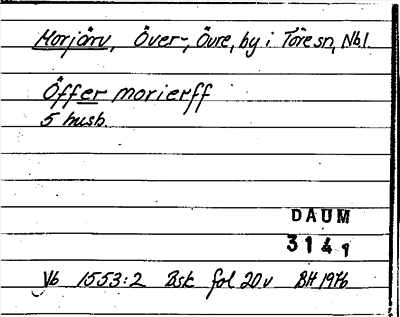 Morjärv, Över-, Övre, by i Töre sn, Nbl.
Öffer morierff
5 husb.
DAUM
3149
Vb 1553:2 Bsk fol 20v BH 1976